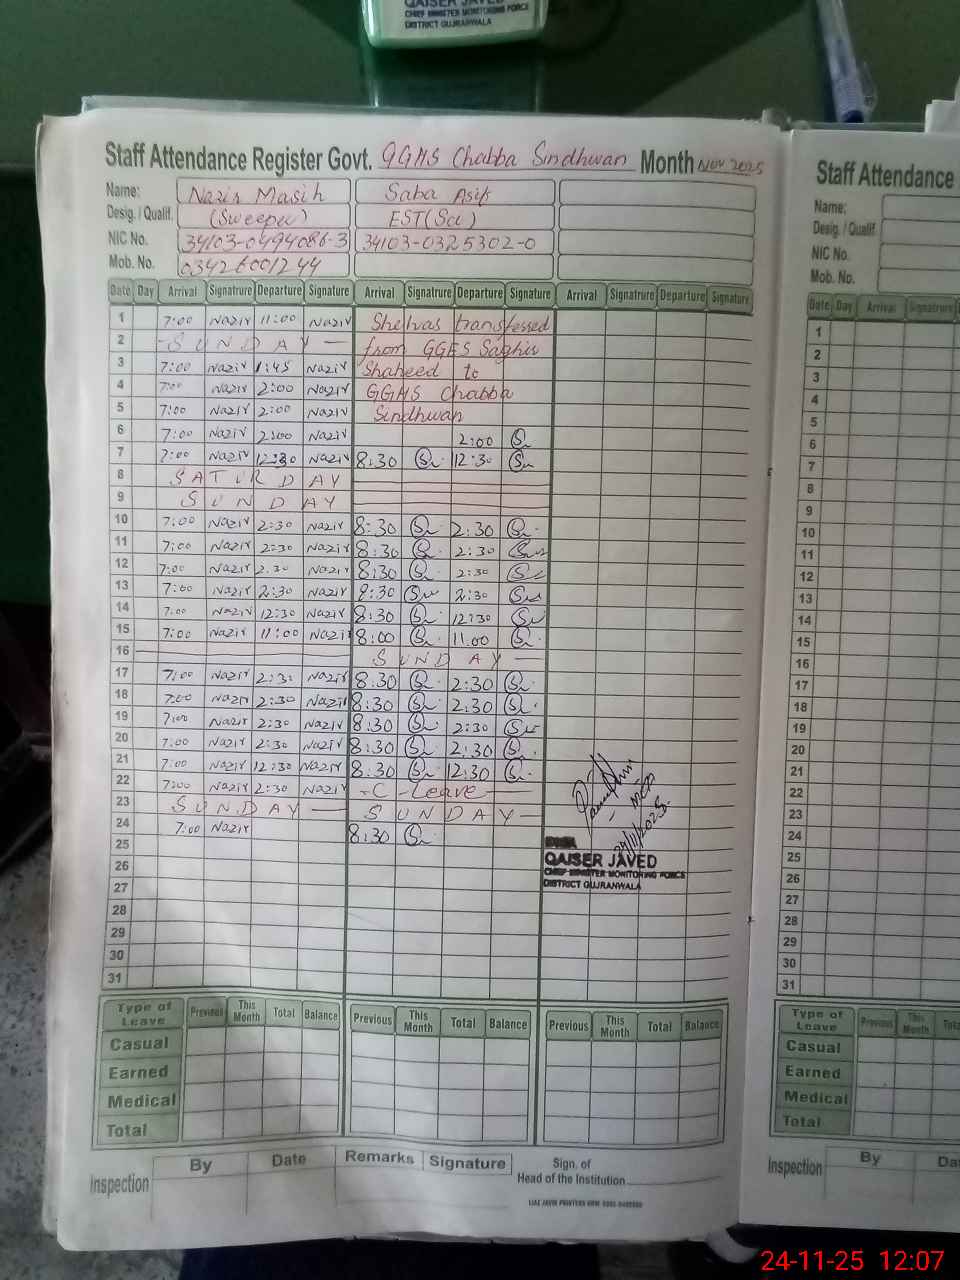 QAISER JAVED
CHIEF MINISTER MONITORING FORCE
DISTRICT GUJRANWALA
Staff Attendance Register Govt. GGHS Chabba Sindhwan Month Nov 2025
Name: Nazir Masih Saba Asif
Desig. / Qualif. (Sweeper) EST(Sci)
NIC No. 34103-0494086-3 34103-0325302-0
Mob. No. 03426001244
Date Day Arrival Signatrure Departure Signature Arrival Signatrure Departure Signature Arrival Signatrure Departure Signature
1 7:00 Nazir 11:00 Nazir She has transferred
2 SUNDAY from GGES Saghir
3 7:00 Nazir 1:45 Nazir Shaheed to
4 7:00 Nazir 2:00 Nazir GGHS Chabba
5 7:00 Nazir 2:00 Nazir Sindhwan
6 7:00 Nazir 2:00 Nazir 2:00
7 7:00 Nazir 12:30 Nazir 8:30 12:30
8 SATURDAY
9 SUNDAY
10 7:00 Nazir 2:30 Nazir 8:30 2:30
11 7:00 Nazir 2:30 Nazir 8:30 2:30
12 7:00 Nazir 2:30 Nazir 8:30 2:30
13 7:00 Nazir 2:30 Nazir 8:30 2:30
14 7:00 Nazir 12:30 Nazir 8:30 12:30
15 7:00 Nazir 11:00 Nazir 8:00 11.00
16 SUNDAY
17 7:00 Nazir 2:30 Nazir 8.30 2:30
18 7:00 Nazir 2:30 Nazir 8.30 2.30
19 7:00 Nazir 2:30 Nazir 8:30 2:30
20 7:00 Nazir 2:30 Nazir 8:30 2:30
21 7:00 Nazir 12:30 Nazir 8.30 12:30
22 7:00 Nazir 2:30 Nazir -C-Leave
23 SUNDAY SUNDAY
24 7:00 Nazir 8:30
25
26
27
28
29
30
31
24/11/2025
QAISER JAVED
CHIEF MINISTER MONITORING FORCE
DISTRICT GUJRANWALA
Type of Leave Previous This Month Total Balance Previous This Month Total Balance Previous This Month Total Balance
Casual
Earned
Medical
Total
Inspection By Date Remarks Signature Sign. of Head of the Institution
Staff Attendance
Name:
Desig. / Qualif.
NIC No.
Mob. No.
Date Day Arrival Signatrure
1
2
3
4
5
6
7
8
9
10
11
12
13
14
15
16
17
18
19
20
21
22
23
24
25
26
27
28
29
30
31
Type of Leave Previous This Month
Casual
Earned
Medical
Total
Inspection By
24-11-25 12:07